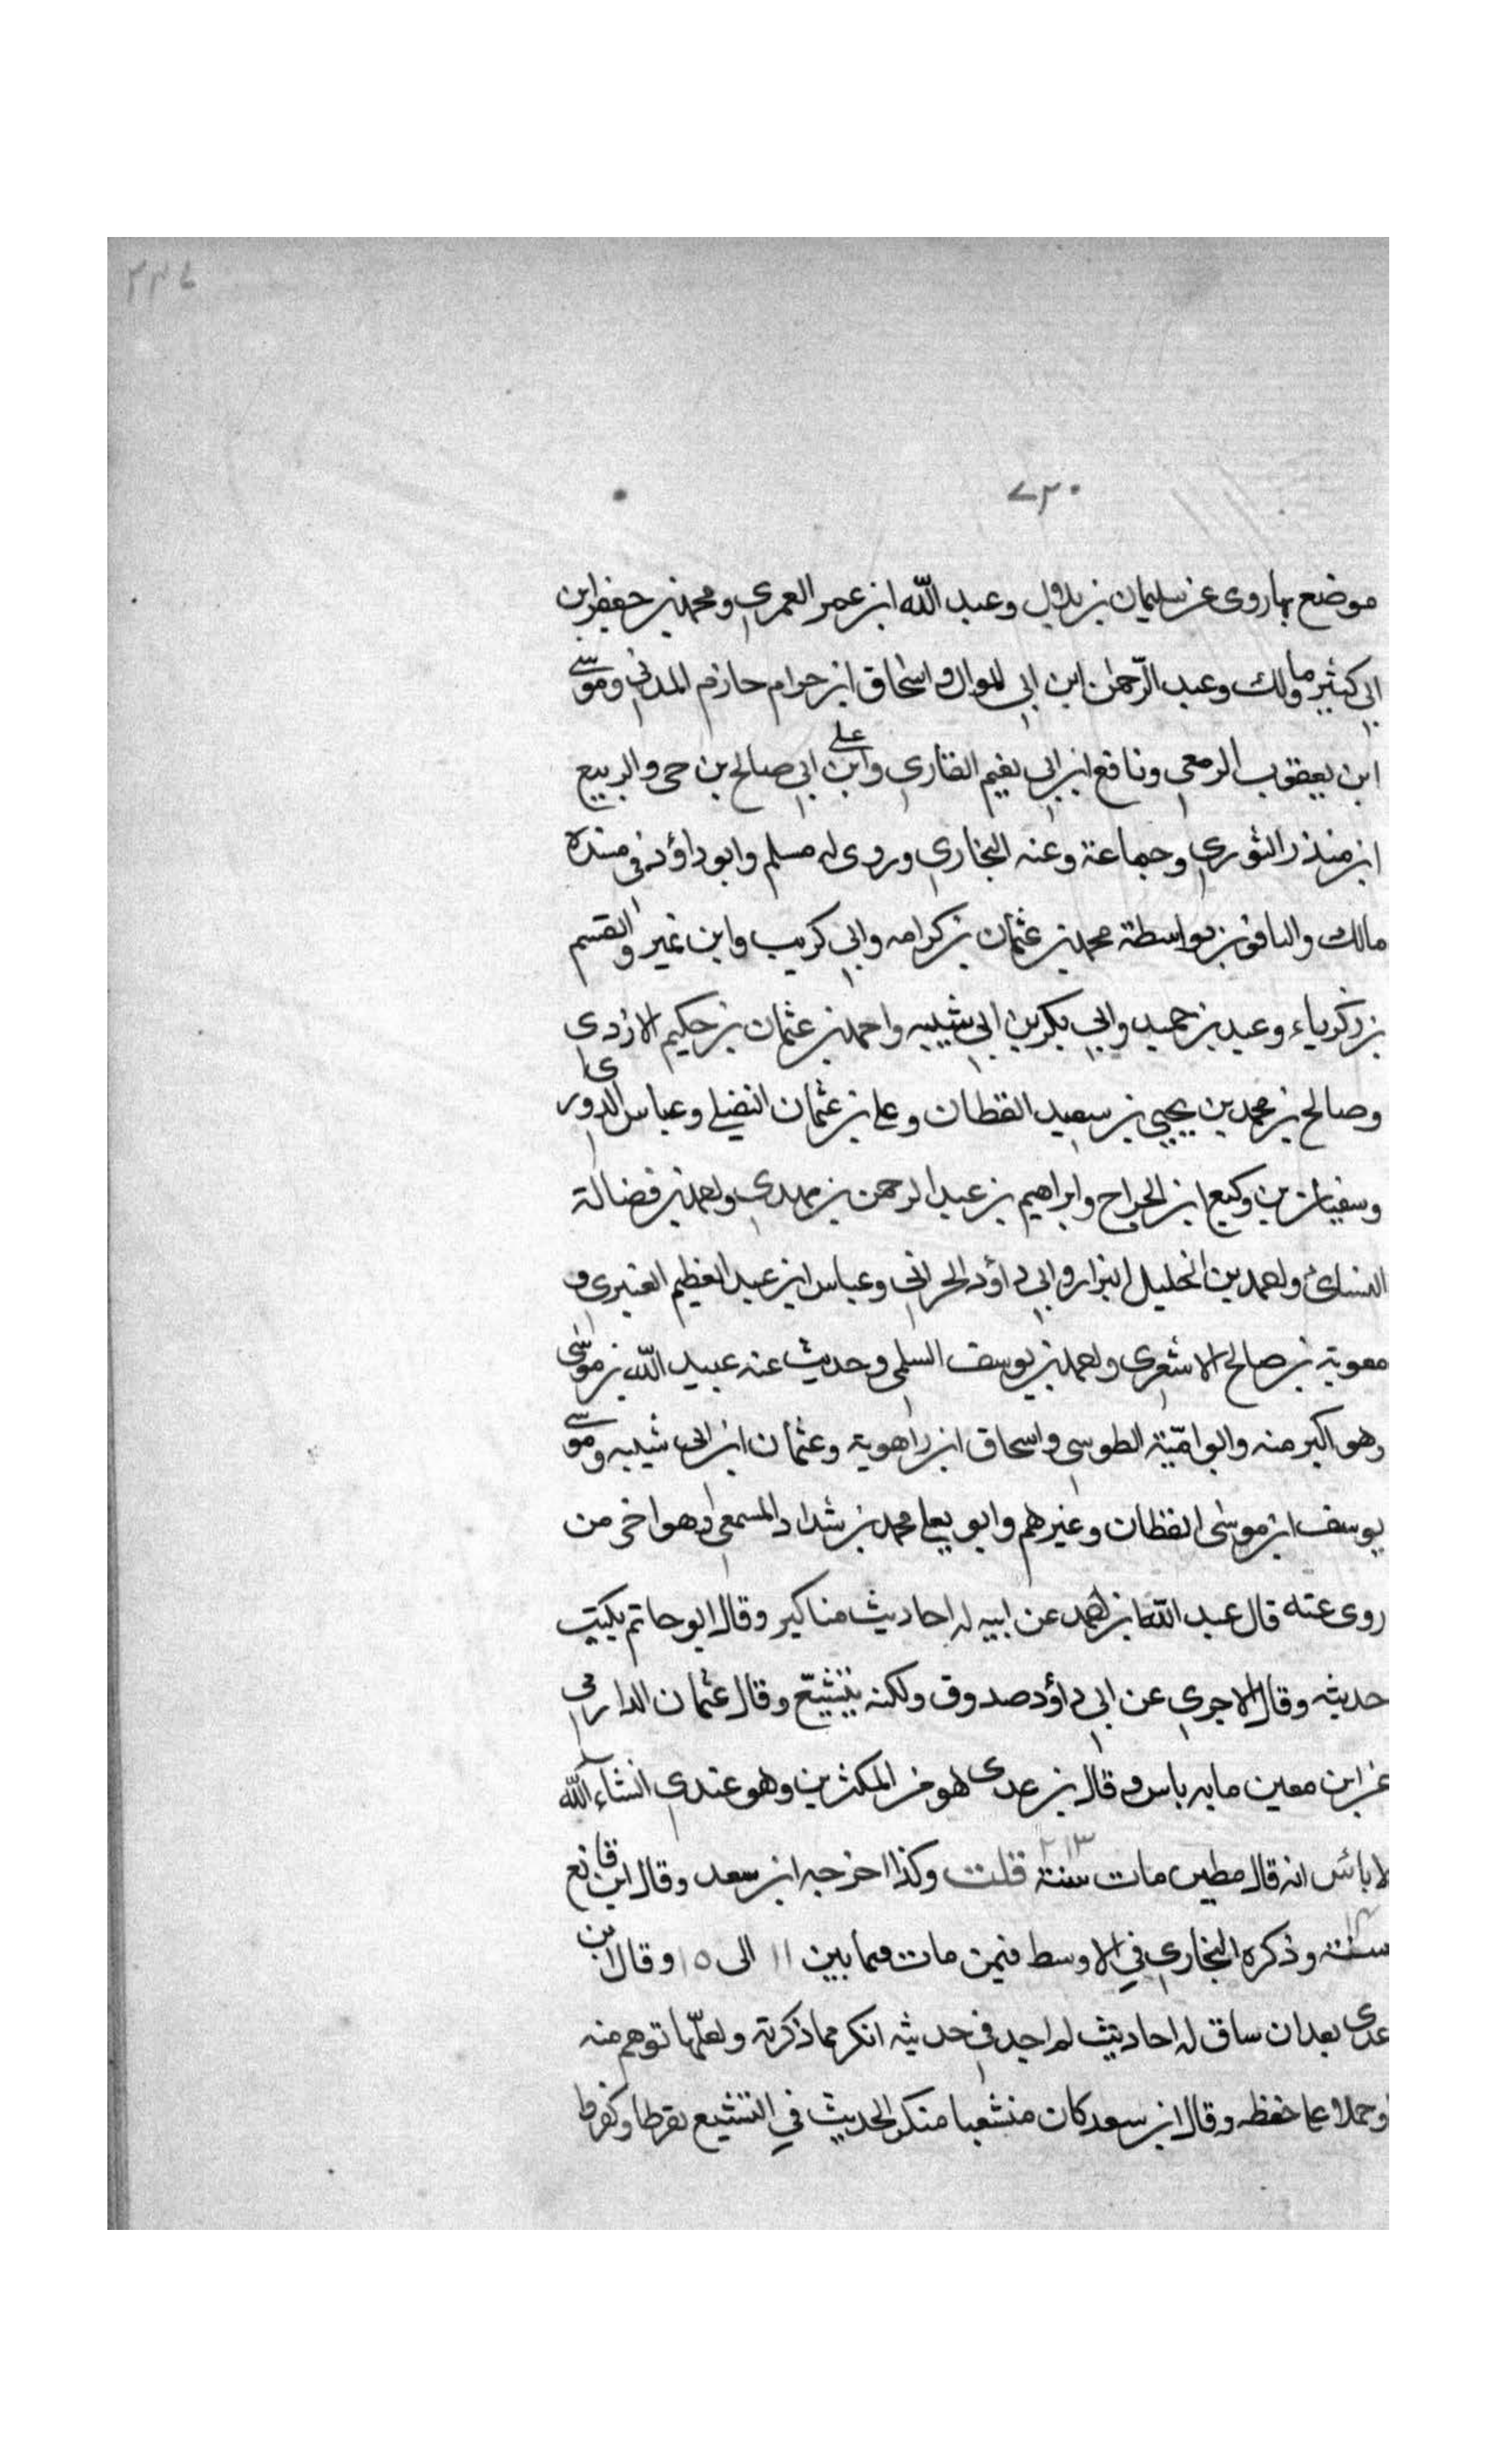 ٢٣٤
٧٣٠
موضع بها روى عن سليمان بن بلال وعبد الله ابن عمر العمري ومحمد بن جعفر ابن
ابي كثير ومالك وعبد الرّحمن ابن ابي الموال واسحاق ابن حرام حازم المدني وموسى
ابن يعقوب الزمعي ونافع ابن ابي نعيم القاري وابن علي ابي صالح بن حى والربيع
ابن منذر الثوري وجماعة وعنه البخاري وروى له مسلم وابو داؤد في مسنده
مالك والباقون بواسطة محمد بن عثمان بن كرامه وابي كريب وابن نمير والقسم
بن زكرياء وعبد بن حميد وابي بكر بن ابي شيبه واحمد بن عثمان بن حكيم الازدى
وصالح بن محمد بن يحيى بن سعيد القطان وعلي بن عثمان النفيلي وعباس الدورى
وسفيان بن وكيع ابن الجراح وابراهيم بن عبد الرحمن بن مهدي واحمد بن فضالة
النسائ واحمد بن الخليل البزار وابي داؤد الحراني وعباس ابن عبد العظيم العنبرى و
معوية بن صالح الاشعرى واحمد بن يوسف السلمى وحديث عنه عبيد الله بن موسى
وهو اكبر منه وابو اميّة الطوسي واسحاق ابن راهوية وعثمان ابن ابي شيبه وموسى
يوسف ابن موسى القطان وغيرهم وابو يعلي محمد بن شداد المسمعي وهو اخر من
روى عنه قال عبد الله ابن احمد عن ابيه له احاديث مناكير وقال ابو حاتم يكتب
حديثه وقال الاجري عن ابي داؤد صدوق ولكنه يتشيّع وقال عثمان الدارمى
عن ابن معين مابه باس وقال بن عدى هو من المكثرين وهو عندي انشاء الله
لا بائس انه قال مطين مات سنة ٢١٣ قلت وكذا اخرجه ابن سعد وقال ابن قانع
سنة وذكره البخاري في الاوسط فيمن مات فيما بين ١١ الى ١٥ وقال ابن
عدى بعد ان ساق له احاديث لم اجد في حديثه انكر مما ذكرته ولعلّها توهم منه
وحملا علي حفظه وقال ابن سعد كان منشعبا منكر الحديث في التشيع